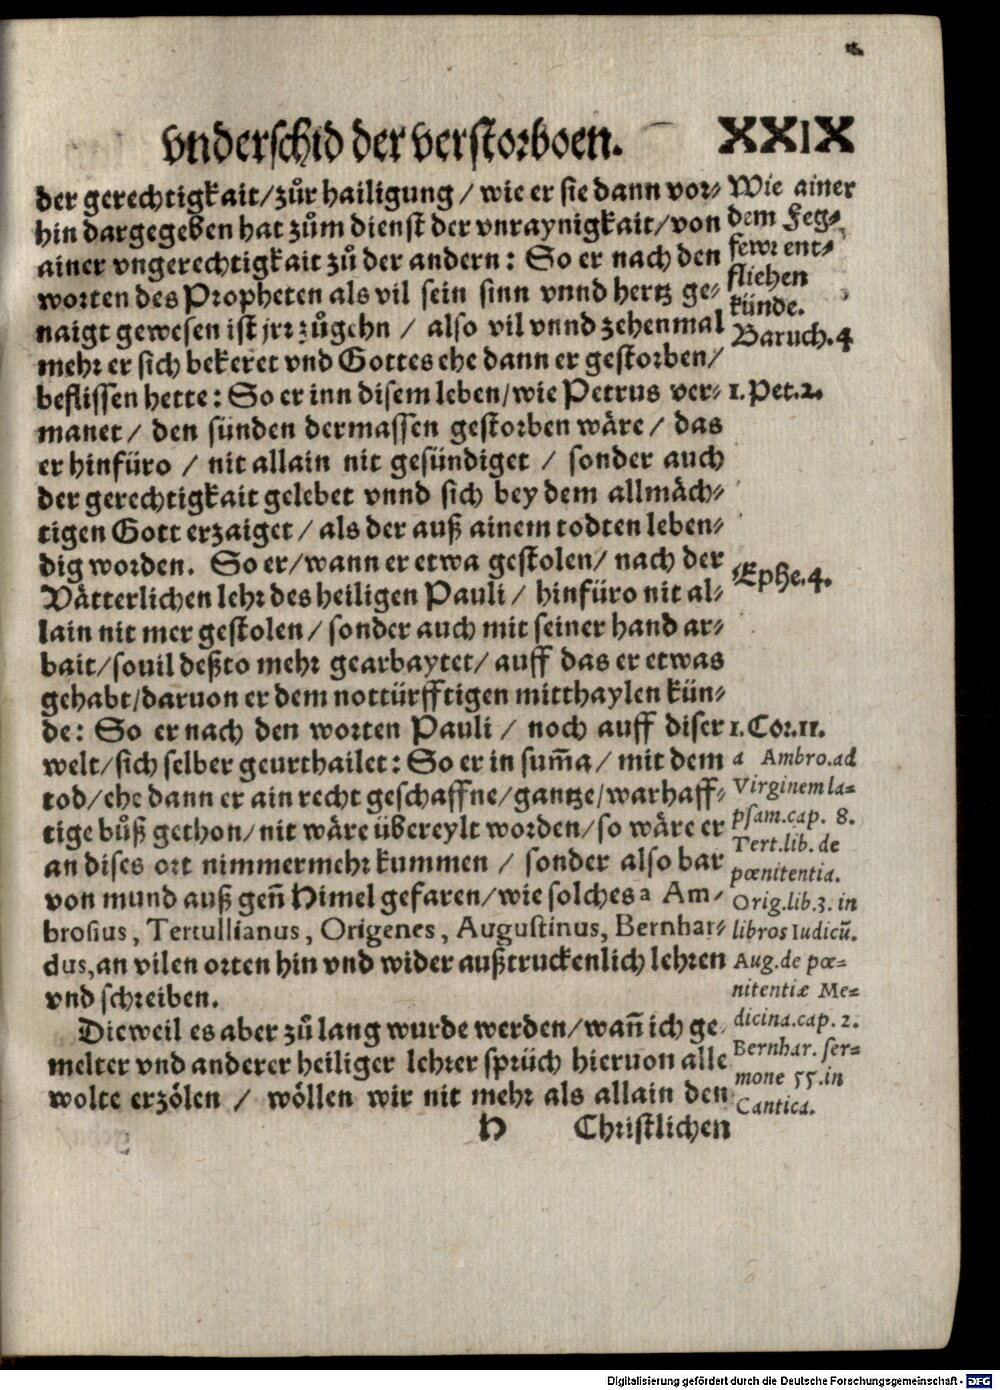 vnderschid der verstorboen. XXIX
der gerechtigkait/zůr hailigung/ wie er sie dann vor⸗
hin dargegeben hat zům dienst der vnraynigkait/von
ainer vngerechtigkait zů der andern: So er nach den
worten des Propheten als vil sein sinn vnnd hertz ge⸗
naigt gewesen ist jrr zůgehn / also vil vnnd zehenmal
mehr er sich bekeret vnd Gottes ehe dann er gestorben/
beflissen hette: So er inn disem leben/wie Petrus ver⸗
manet / den sünden dermassen gestorben wäre / das
er hinfüro / nit allain nit gesündiget / sonder auch
der gerechtigkait gelebet vnnd sich bey dem allmäch⸗
tigen Gott erzaiget / als der auß ainem todten leben⸗
dig worden. So er/wann er etwa gestolen/ nach der
Vätterlichen lehr des heiligen Pauli / hinfüro nit al⸗
lain nit mer gestolen / sonder auch mit seiner hand ar⸗
bait/souil deßto mehr gearbaytet/ auff das er etwas
gehabt/daruon er dem nottürfftigen mitthaylen kün⸗
de: So er nach den worten Pauli / noch auff diser
welt/sich selber geurthailet: So er in sum̃a/ mit dem
tod/ehe dann er ain recht geschaffne/gantze/warhaff⸗
tige bůß gethon/nit wäre übereylt worden/so wäre er
an dises ort nimmermehr kummen / sonder also bar
von mund auß gen̄ Himel gefaren/wie solches a Am⸗
brosius, Tertullianus, Origenes, Augustinus, Bernhar⸗
dus, an vilen orten hin vnd wider außtruckenlich lehren
vnd schreiben.
Dieweil es aber zů lang wurde werden/wan̄ ich ge⸗
melter vnd anderer heiliger lehrer sprüch hieruon alle
wolte erzölen / wöllen wir nit mehr als allain den
H Christlichen
Wie ainer
dem Feg⸗
fewr ent⸗
fliehen
künde.
Baruch.4
1. Pet.2.
Ephe.4.
1. Cor.11.
a Ambro.ad
Virginem la⸗
psam.cap. 8.
Tert.lib. de
pœnitentia.
Orig.lib.3. in
libros Iudicū.
Aug.de pœ⸗
nitentiæ Me⸗
dicina.cap. 2.
Bernhar. ser⸗
mone 55.in
Cantica.
Digitalisierung gefördert durch die Deutsche Forschungsgemeinschaft - DFG